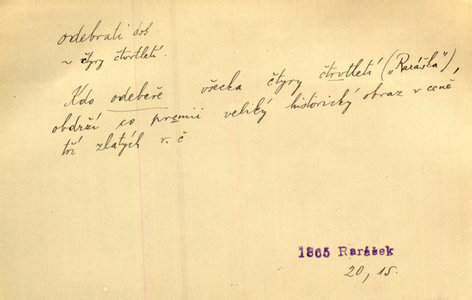 odebrati dok
~ čtyry čtvrtletí.
Kdo odebeře všecka čtyry čtvrtletí („Raráška“),
obdrží co premii veliký historický obraz v ceně
tří zlatých r. č.
1865 Rarášek
20, 15.